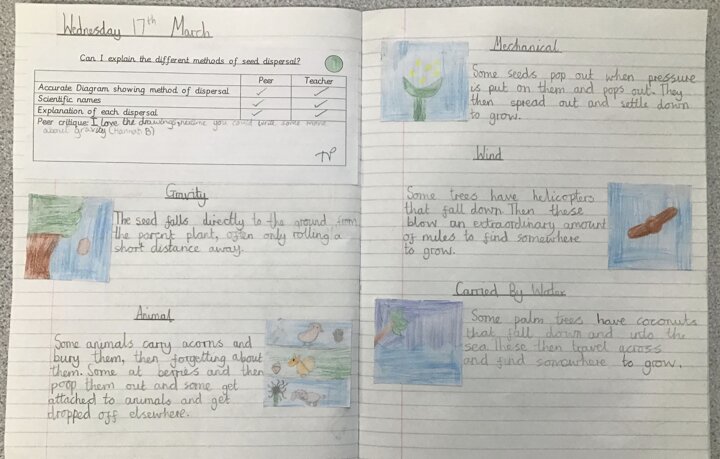 Wednesday 17th March
Can I explain the different methods of seed dispersal?
Peer Teacher
Accurate Diagram showing method of dispersal ✓ ✓
Scientific names ✓ ✓
Explanation of each dispersal ✓ ✓
Peer critique: I love the drawings, nextime you could write some more
about gravity (Hannah B)
Gravity
The seed falls directly to the ground from
the parent plant, often only rolling a
short distance away.
Animal
Some animals carry acorns and
bury them, then forgetting about
them. Some at berries and then
poop them out and some get
attached to animals and get
dropped off elsewhere.
Mechanical
Some seeds pop out when pressure
is put on them and pops out. They
then spread out and settle down
to grow.
Wind
Some trees have helicopters
that fall down. Then these
blow an extraordinary amount
of miles to find somewhere
to grow.
Carried By Water
Some palm trees have coconuts
that fall down and into th
sea. These then travel across
and find somewhere to grow.